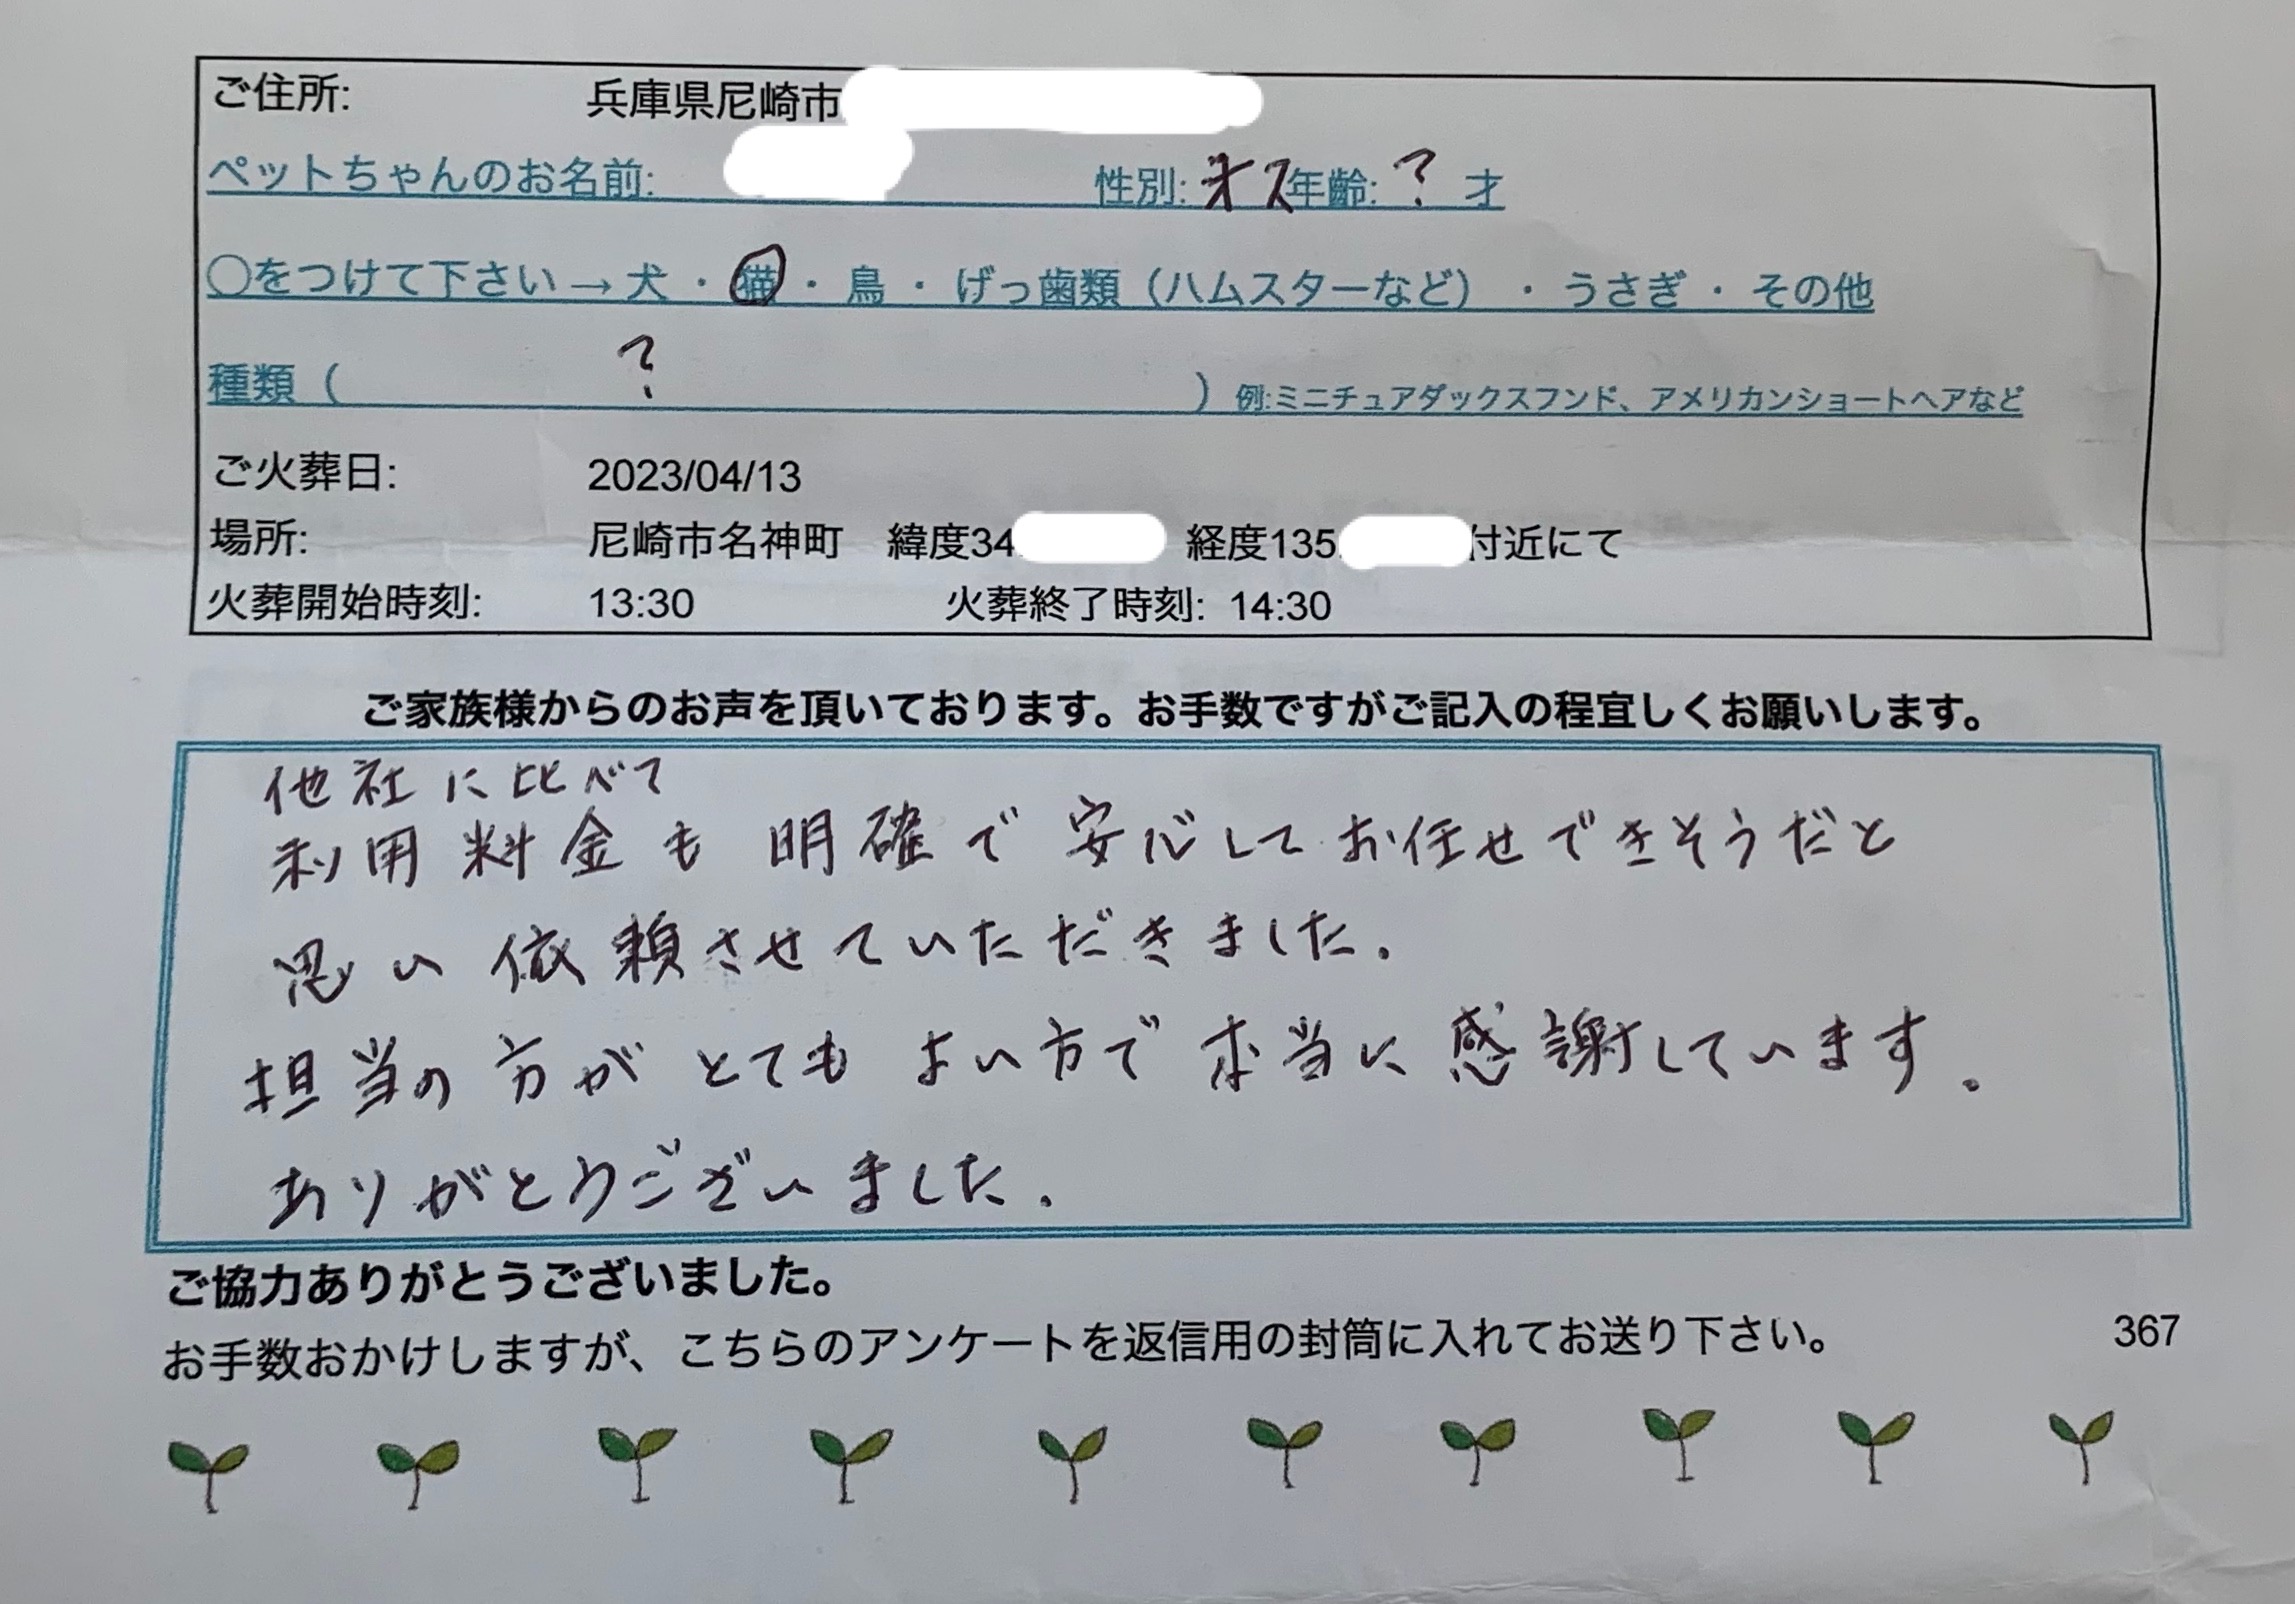 ご住所: 兵庫県尼崎市
ペットちゃんのお名前: 性別: オス 年齢: ? 才
〇をつけて下さい→犬・猫・鳥・げっ歯類（ハムスターなど）・うさぎ・その他
種類（ ? ）例:ミニチュアダックスフンド、アメリカンショートヘアなど
ご火葬日: 2023/04/13
場所: 尼崎市名神町 緯度34. 経度135. 付近にて
火葬開始時刻: 13:30 火葬終了時刻: 14:30
ご家族様からのお声を頂いております。お手数ですがご記入の程宜しくお願いします。
他社に比べて
利用料金も明確で安心してお任せできそうだと
思い依頼させていただきました。
担当の方がとてもよい方で本当に感謝しています。
ありがとうございました。
ご協力ありがとうございました。
お手数おかけしますが、こちらのアンケートを返信用の封筒に入れてお送り下さい。 367